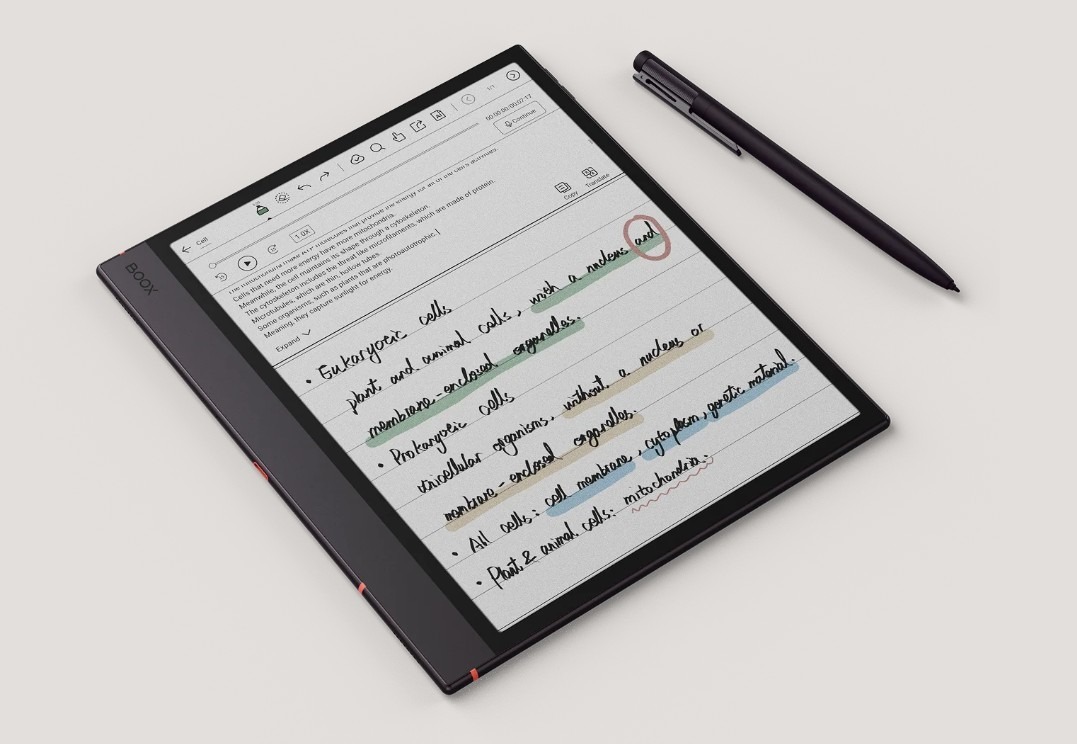 BOOX
Cell
1/1
00:00:00/00:07:17
Continue
1.0X
provide the energy for all of the cell's activities.
Cells that need more energy have more mitochondria.
Meanwhile, the cell maintains its shape through a cytoskeleton.
The cytoskeleton includes the threat like microfilaments, which are made of protein.
Microtubules, which are thin, hollow tubes.
Some organisms, such as plants that are photoautotrophic,
Meaning, they capture sunlight for energy.
Copy
Translate
Expand
• Eukaryotic cells
plant and animal cells, with a nucleus and
membrane-enclosed organelles.
• Prokaryotic cells
unicellular organisms, without a nucleus or
membrane-enclosed organelles.
• All cells: cell membrane, cytoplasm, genetic material.
• Plant & animal cells: mitochondria.